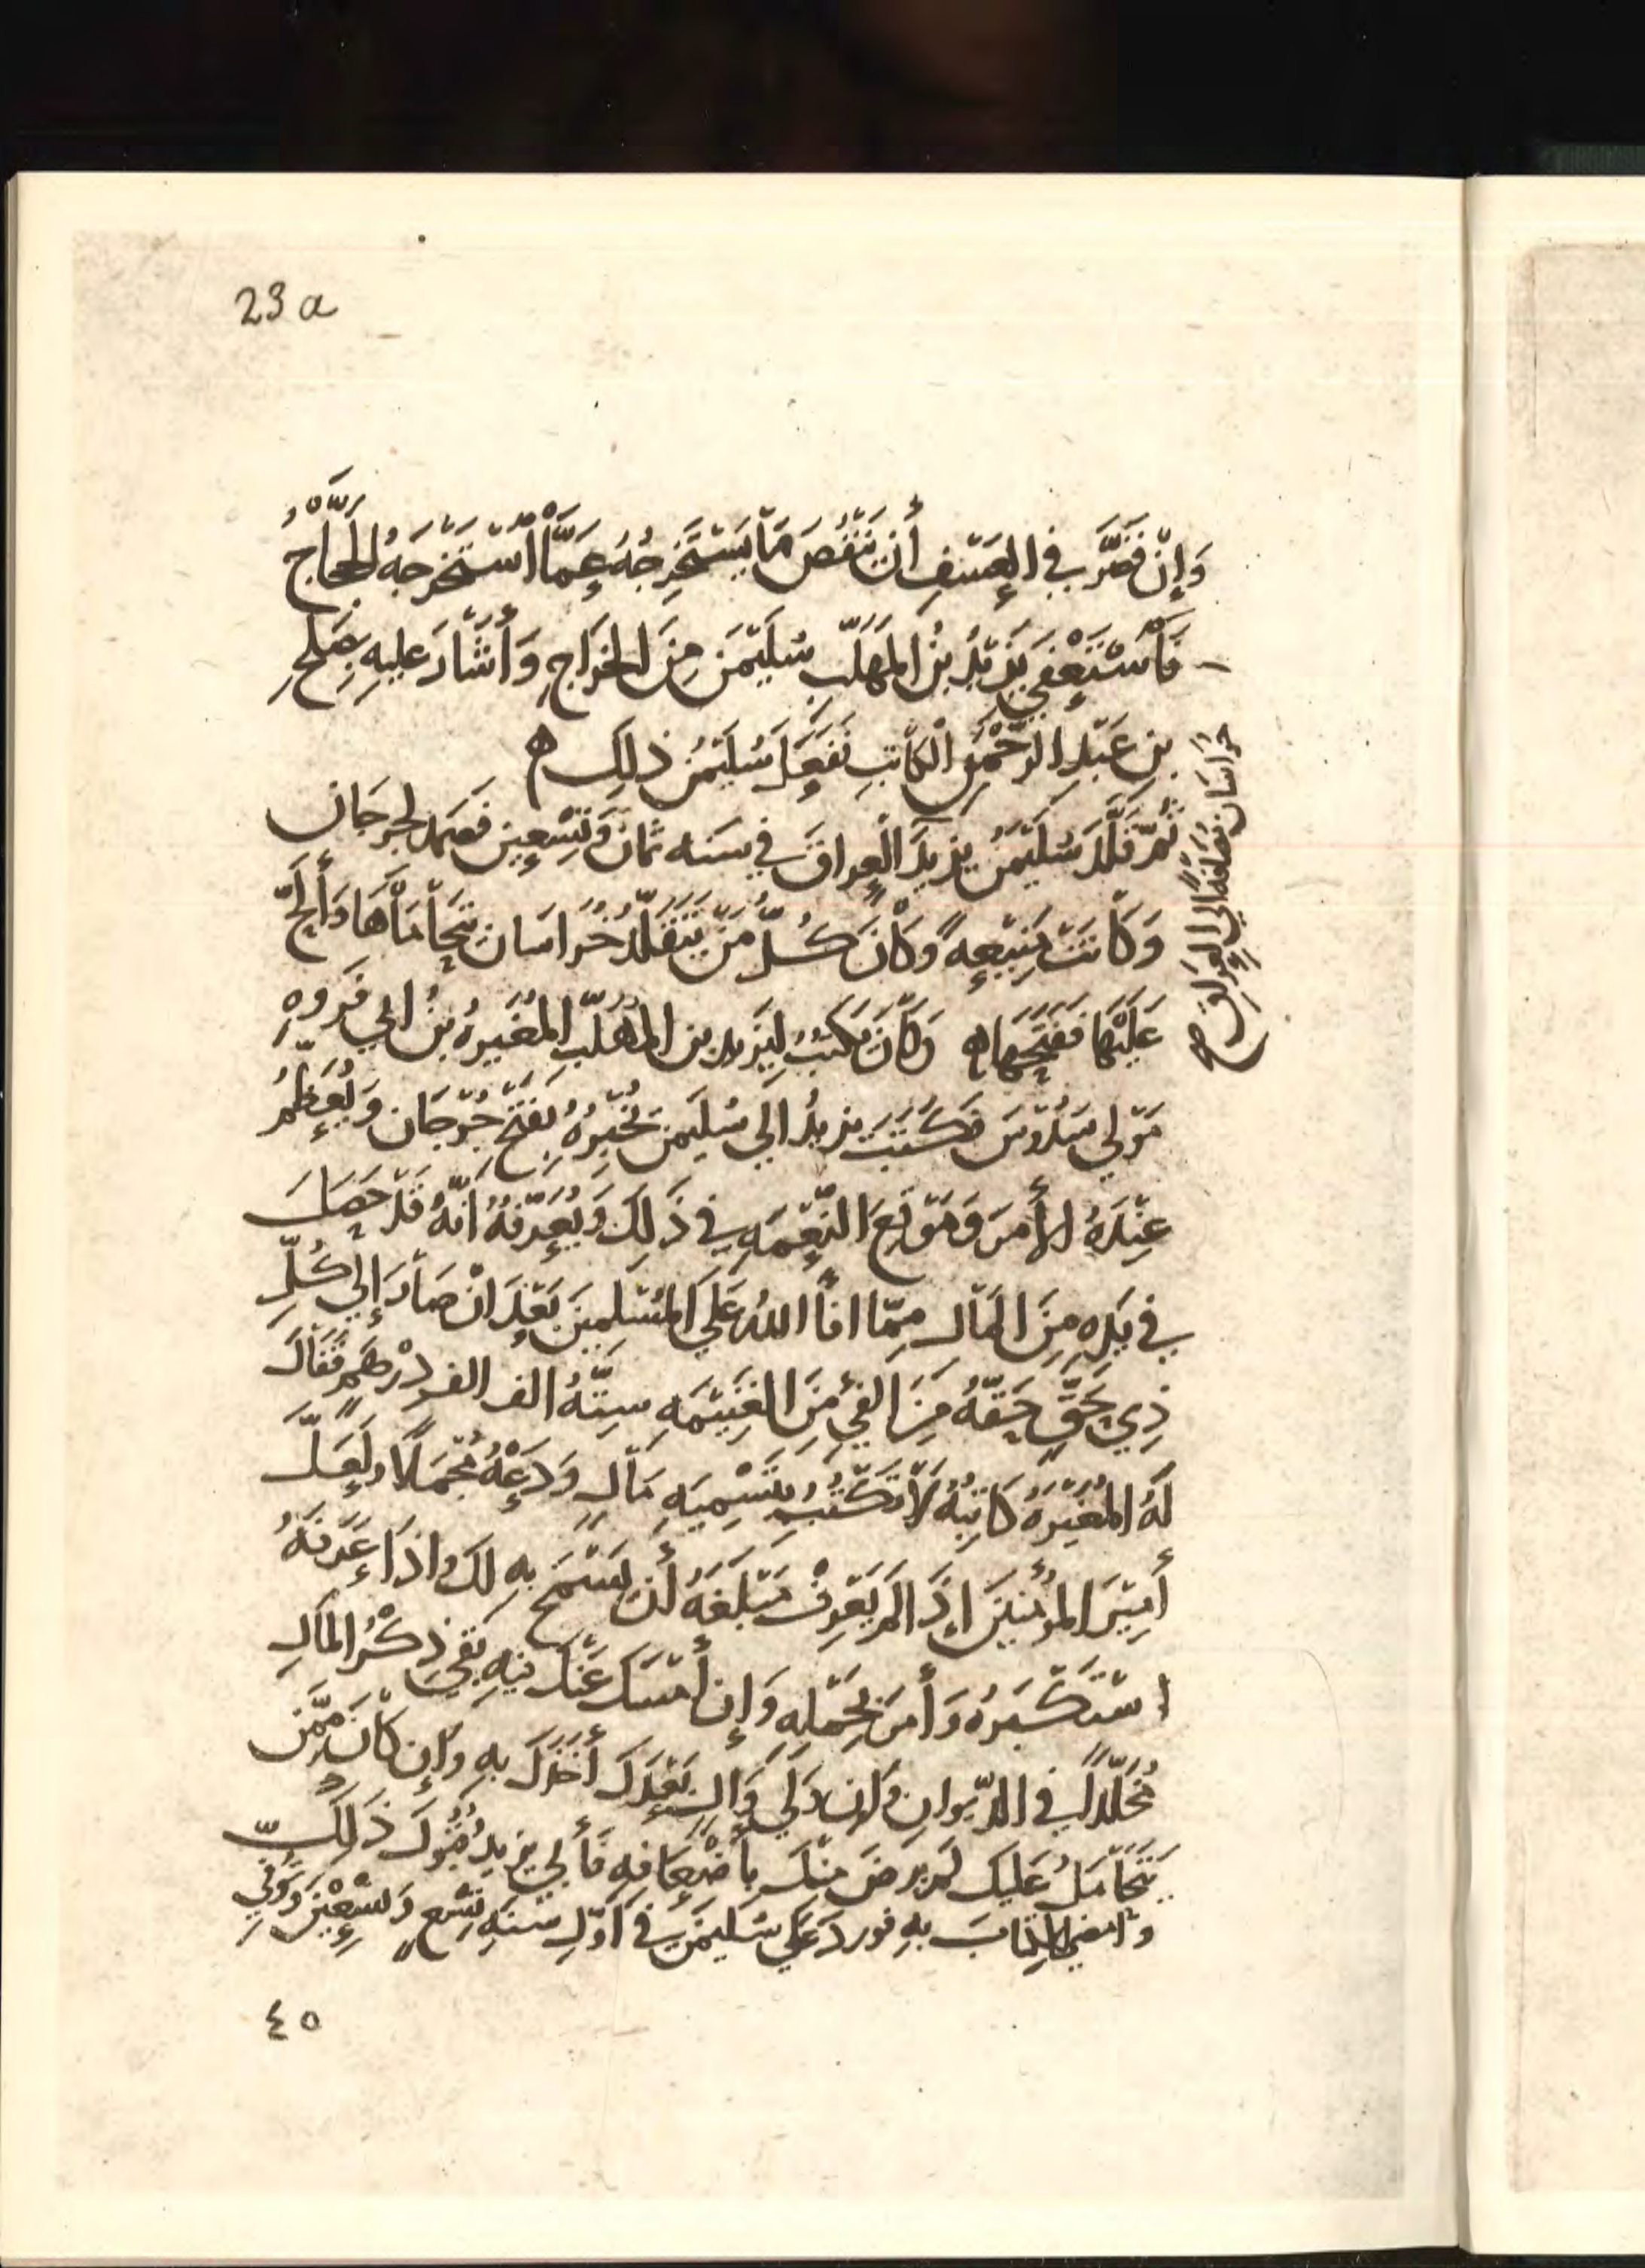 23 a
وَإِنْ قَصَّرَ فِي الْعَسْفِ أَنْ يَنْقُصَ مَا يَسْتَخْرِجُهُ عَمَّا اسْتَخْرَجَهُ الْحَجَّاجُ
فَاسْتَعْفَى يَزِيدُ بْنُ الْمُهَلَّبِ سُلَيْمَنَ مِنَ الْخَرَاجِ وَأَشَارَ عَلَيْهِ بِصَلِحِ
بْنِ عَبْدِ الرَّحْمَنِ الْكَاتِبِ فَفَعَلَ سُلَيْمَنُ ذَلِكَ ه
ثُمَّ قَلَّدَ سُلَيْمَنُ يَزِيدَ الْعِراقَ في سنه ثمَانٍ وَتِسْعِين فَصَمد لِجرجَان
خُرَاسَان مُضَافَةً إِلَى الْعِرَاقِ صح
وَكَانَتْ مَنِيعِةً وَكَانَ كُلُّ مَنْ يَتَقَلَّدُ خُرَاسَان يَتَحَامَاهَا وَأَلَحَّ
عَلَيْهَا فَفَتَحَهَا ه وَكَانَ يَكْتُبُ لِيَزِيد بن المُهَلَّبِ الْمُغِيرَهُ بْنُ ابي فَرْوَهِ
مَوْلَى سَدُوسَ فَكَتَبَ يَزِيدُ الى سُلَيْمَن يُخْبِرُهُ بِفَتْحِ جُرْجَان وَيُعَظِّمُ
عِنْدَهُ الأَمرَ وَمَوْقِعَ النِّعْمَهِ فِي ذَلِكَ وَيُعَرِّفُهُ أَنَّهُ قَدْ حَصَلَ
فِي يَدِهِ مِنَ الْمَالِ مِمَّا افَأَ اللهُ عَلَى الْمُسْلِمِينَ بَعْدَ انْ صَارَ إِلَى كُلِّ
ذِي حَقٍّ حَقّهُ مِنَ الفَئِ مِنَ الْغَنِيمَهِ سِتَّهُ الف الف دِرْهَمٍ فَقَالَ
لَهُ الْمُغِيْرَهُ كَاتِبُهُ لَا تَكْتُبْ بِتَسْمِيَهِ مَالٍ وَدَعْهُ مُجْمَلًا وَلَعَلَّ
أَمِيْرَ الْمُؤْمِنِيْنَ اِذَا لَمْ يَعْرِفْ مَبْلَغَهُ أَنْ يَسْمَحَ بِهِ لَكَ وَاذَا عَرَفَهُ
اسْتَكْثَرَهُ وَأَمَرَ بِحَمْلِهِ وَإِن أَمْسَكَ عَنْكَ فِيهِ بَقِيَ ذِكْرُ الْمَالِ
مُخَلَّدًا فِي الدِّيوانِ وَإِن وَلِيَ وَالٍ بَعْدَكَ أَخَذَكَ بِهِ وَإِن كَانَ مِمَّن
يَتَحَامَلُ عَلَيْكَ لَمْ يَرْضَ مِنْكَ بِأَضْعَافِهِ فَأَبى يَزِيدُ قَبُولَ ذَلِكَ
وَامضى الكِتَابَ بِهِ فورد عَلَى سُلَيمَنَ فِي أَوَّلِ سَنَهِ تِسْعٍ وَتِسْعِيْنَ وَتُوُفِّيَ
٤٥